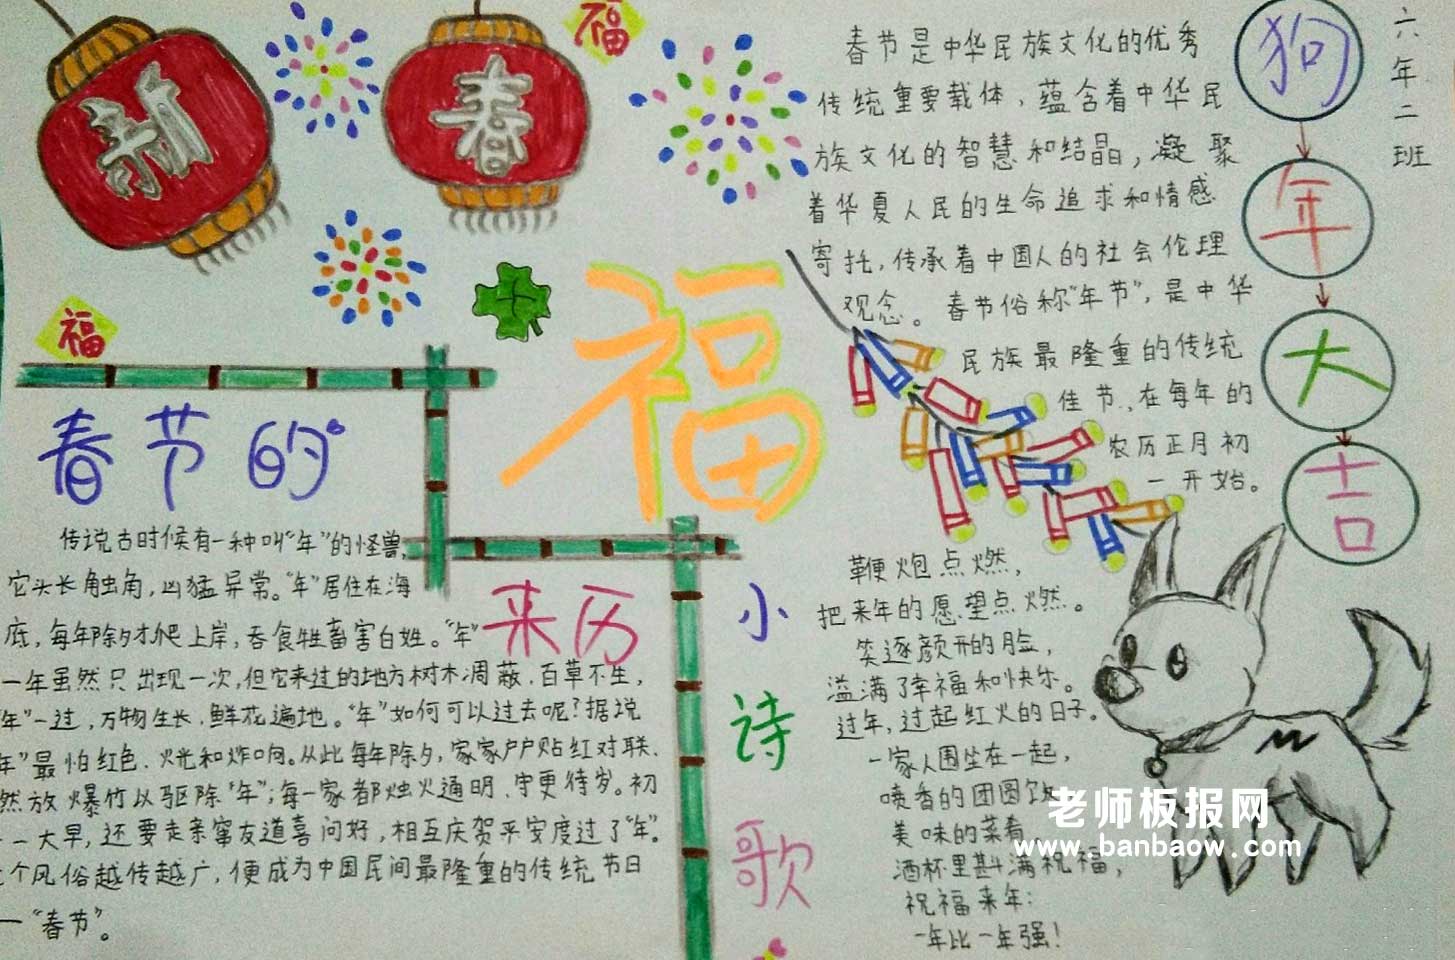 新
春
福
福
福
六年二班
狗
年
大
吉
春节是中华民族文化的优秀
传统重要载体，蕴含着中华民
族文化的智慧和结晶，凝聚
着华夏人民的生命追求和情感
寄托，传承着中国人的社会伦理
观念。春节俗称“年节”，是中华
民族最隆重的传统
佳节，在每年的
农历正月初
一开始。
春节的
来历
传说古时候有一种叫“年”的怪兽，
它头长触角，凶猛异常。“年”居住在海
底，每年除夕才爬上岸，吞食牲畜害百姓。“年”
一年虽然只出现一次，但它来过的地方树木凋蔽，百草不生，
“年”一过，万物生长、鲜花遍地。“年”如何可以过去呢？据说
年”最怕红色、火光和炸响。从此每年除夕，家家户户贴红对联、
然放爆竹以驱除“年”；每一家都烛火通明、守更待岁。初
一大早，还要走亲窜友道喜问好，相互庆贺平安度过了“年”。
个风俗越传越广，便成为中国民间最隆重的传统节日
一“春节”。
小
诗
歌
鞭炮点燃，
把来年的愿望点燃。
笑逐颜开的脸，
溢满了幸福和快乐。
过年，过起红火的日子。
一家人围坐在一起，
喷香的团圆饭
美味的菜肴
酒杯里斟满祝福，
祝福来年：
一年比一年强！
老师板报网
www.banbaow.com